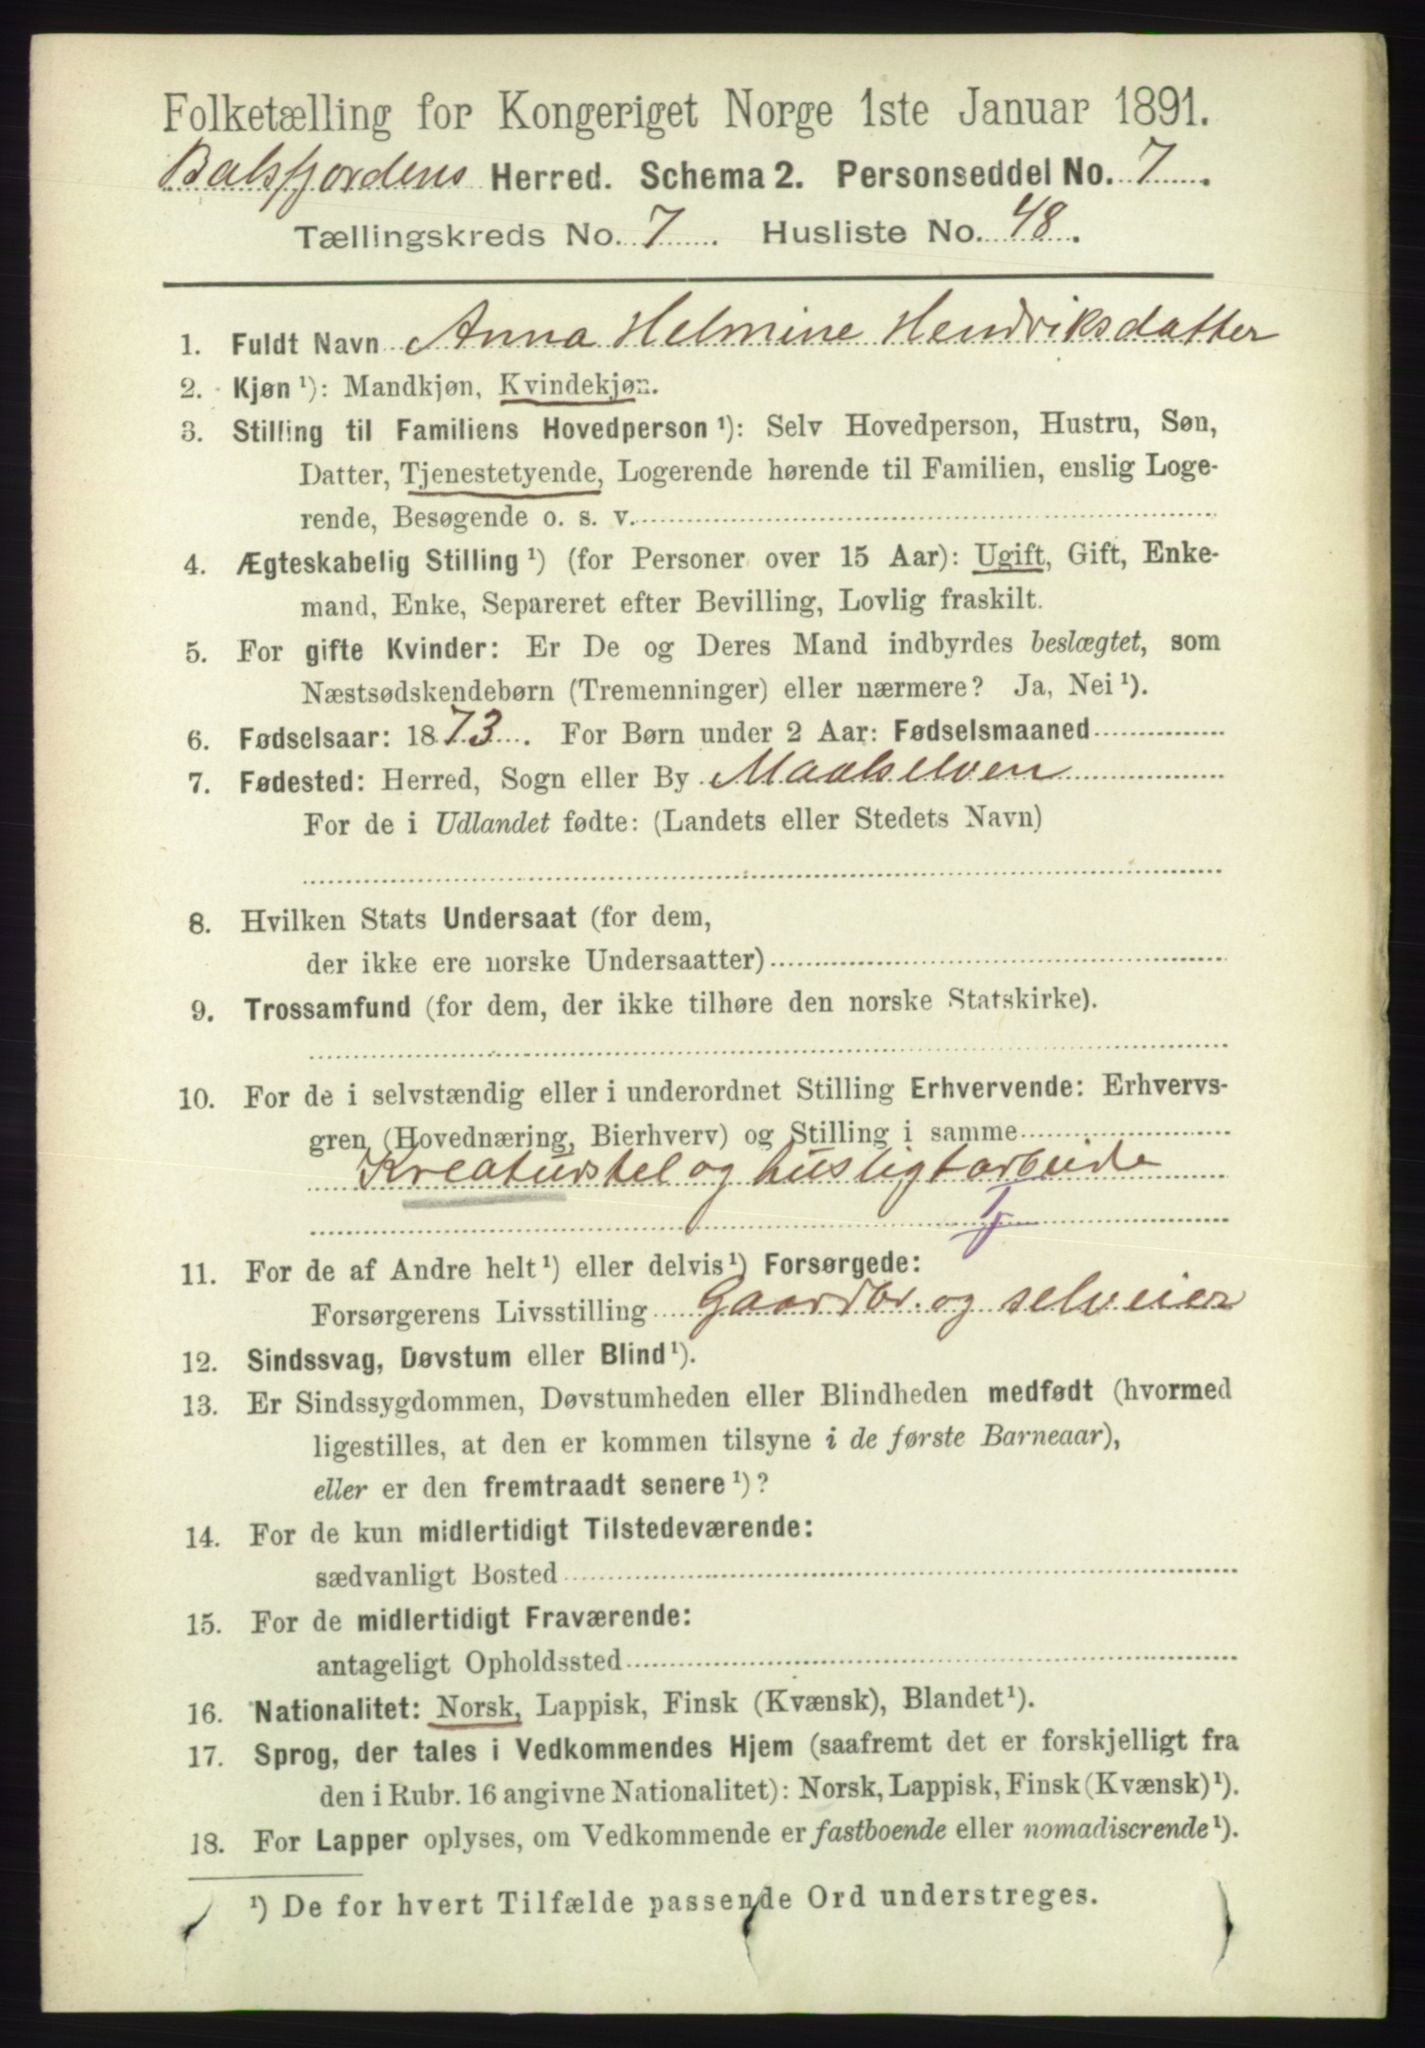 Folketælling for Kongeriget Norge 1ste Januar 1891.
Balsfjordens Herred. Schema 2. Personseddel No. 7.
Tællingskreds No. 7. Husliste No. 48.
1. Fuldt Navn Anna Helmine Hendriksdatter
2. Kjøn ¹): Mandkjøn, Kvindekjøn.
3. Stilling til Familiens Hovedperson ¹): Selv Hovedperson, Hustru, Søn,
Datter, Tjenestetyende, Logerende hørende til Familien, enslig Loge-
rende, Besøgende o. s. v.
4. Ægteskabelig Stilling ¹) (for Personer over 15 Aar): Ugift, Gift, Enke-
mand, Enke, Separeret efter Bevilling, Lovlig fraskilt.
5. For gifte Kvinder: Er De og Deres Mand indbyrdes beslægtet, som
Næstsødskendebørn (Tremenninger) eller nærmere? Ja, Nei ¹).
6. Fødselsaar: 1873. For Børn under 2 Aar: Fødselsmaaned
7. Fødested: Herred, Sogn eller By Maalselven
For de i Udlandet fødte: (Landets eller Stedets Navn)
8. Hvilken Stats Undersaat (for dem,
der ikke ere norske Undersaatter)
9. Trossamfund (for dem, der ikke tilhøre den norske Statskirke).
10. For de i selvstændig eller i underordnet Stilling Erhvervende: Erhvervs-
gren (Hovednæring, Bierhverv) og Stilling i samme
Kreaturstel og husligtarbeide
11. For de af Andre helt ¹) eller delvis ¹) Forsørgede:
Forsørgerens Livsstilling Gaardbr. og selveier
12. Sindssvag, Døvstum eller Blind ¹).
13. Er Sindssygdommen, Døvstumheden eller Blindheden medfødt (hvormed
ligestilles, at den er kommen tilsyne i de første Barneaar),
eller er den fremtraadt senere ¹)?
14. For de kun midlertidigt Tilstedeværende:
sædvanligt Bosted
15. For de midlertidigt Fraværende:
antageligt Opholdssted
16. Nationalitet: Norsk, Lappisk, Finsk (Kvænsk), Blandet ¹).
17. Sprog, der tales i Vedkommendes Hjem (saafremt det er forskjelligt fra
den i Rubr. 16 angivne Nationalitet): Norsk, Lappisk, Finsk (Kvænsk) ¹).
18. For Lapper oplyses, om Vedkommende er fastboende eller nomadiserende ¹).
¹) De for hvert Tilfælde passende Ord understreges.